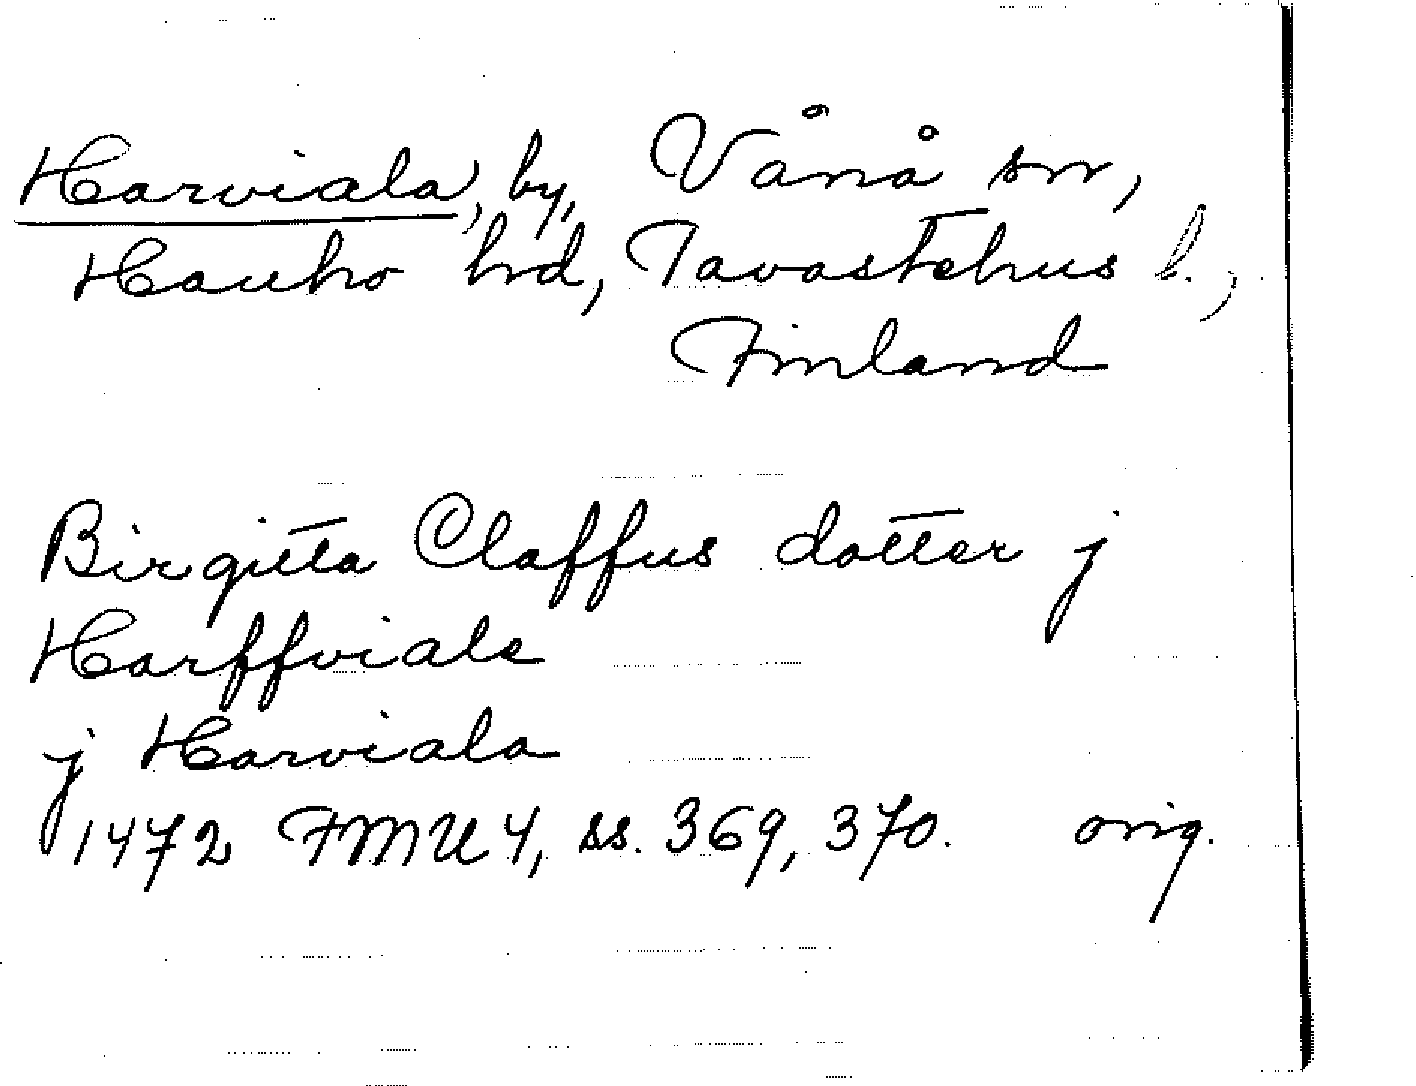 Harviala, by, Vånå sn,
Hauho hrd, Tavastehus l.,
Finland
Birgitta Claffus dotter j
Harffviale
j Harviala
1472 FMU 4, ss. 369, 370. orig.